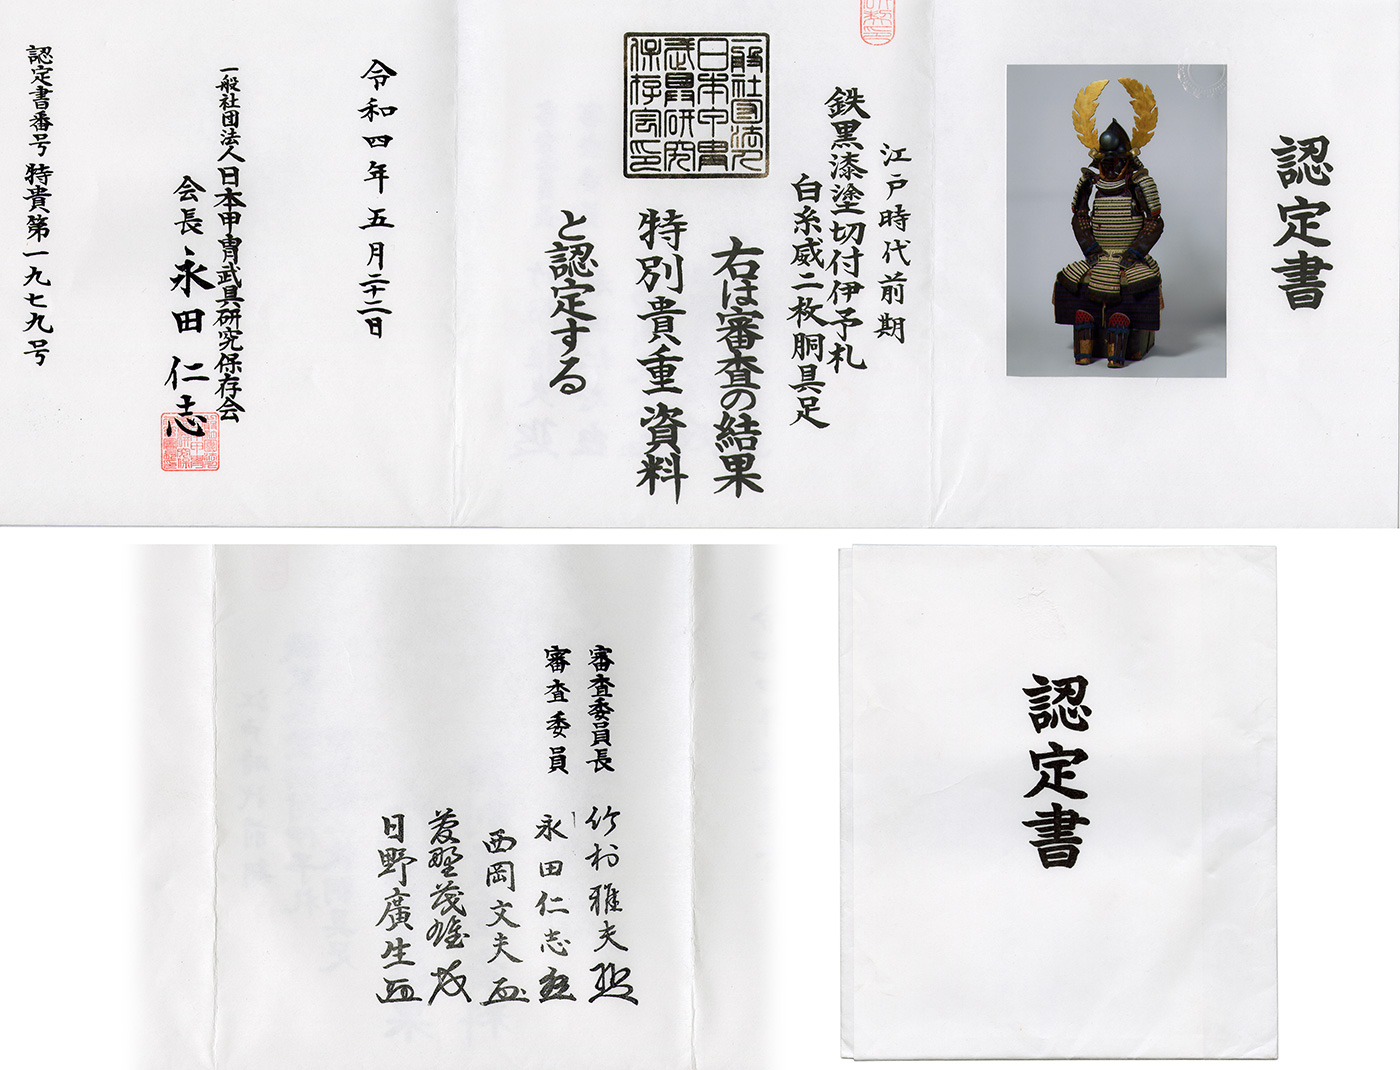 認定書
江戸時代前期
鉄黒漆塗切付伊予札
白糸威二枚胴具足
右は審査の結果
特別貴重資料
と認定する
一般社団法人
日本甲冑
武具研究
保存会印
令和四年五月二十二日
一般社団法人日本甲冑武具研究保存会
会長 永田仁志
認定書番号 特貴第一九七九号
審査委員長 竹村雅夫
審査委員 永田仁志
西岡文夫
茂雄
日野廣生
認定書